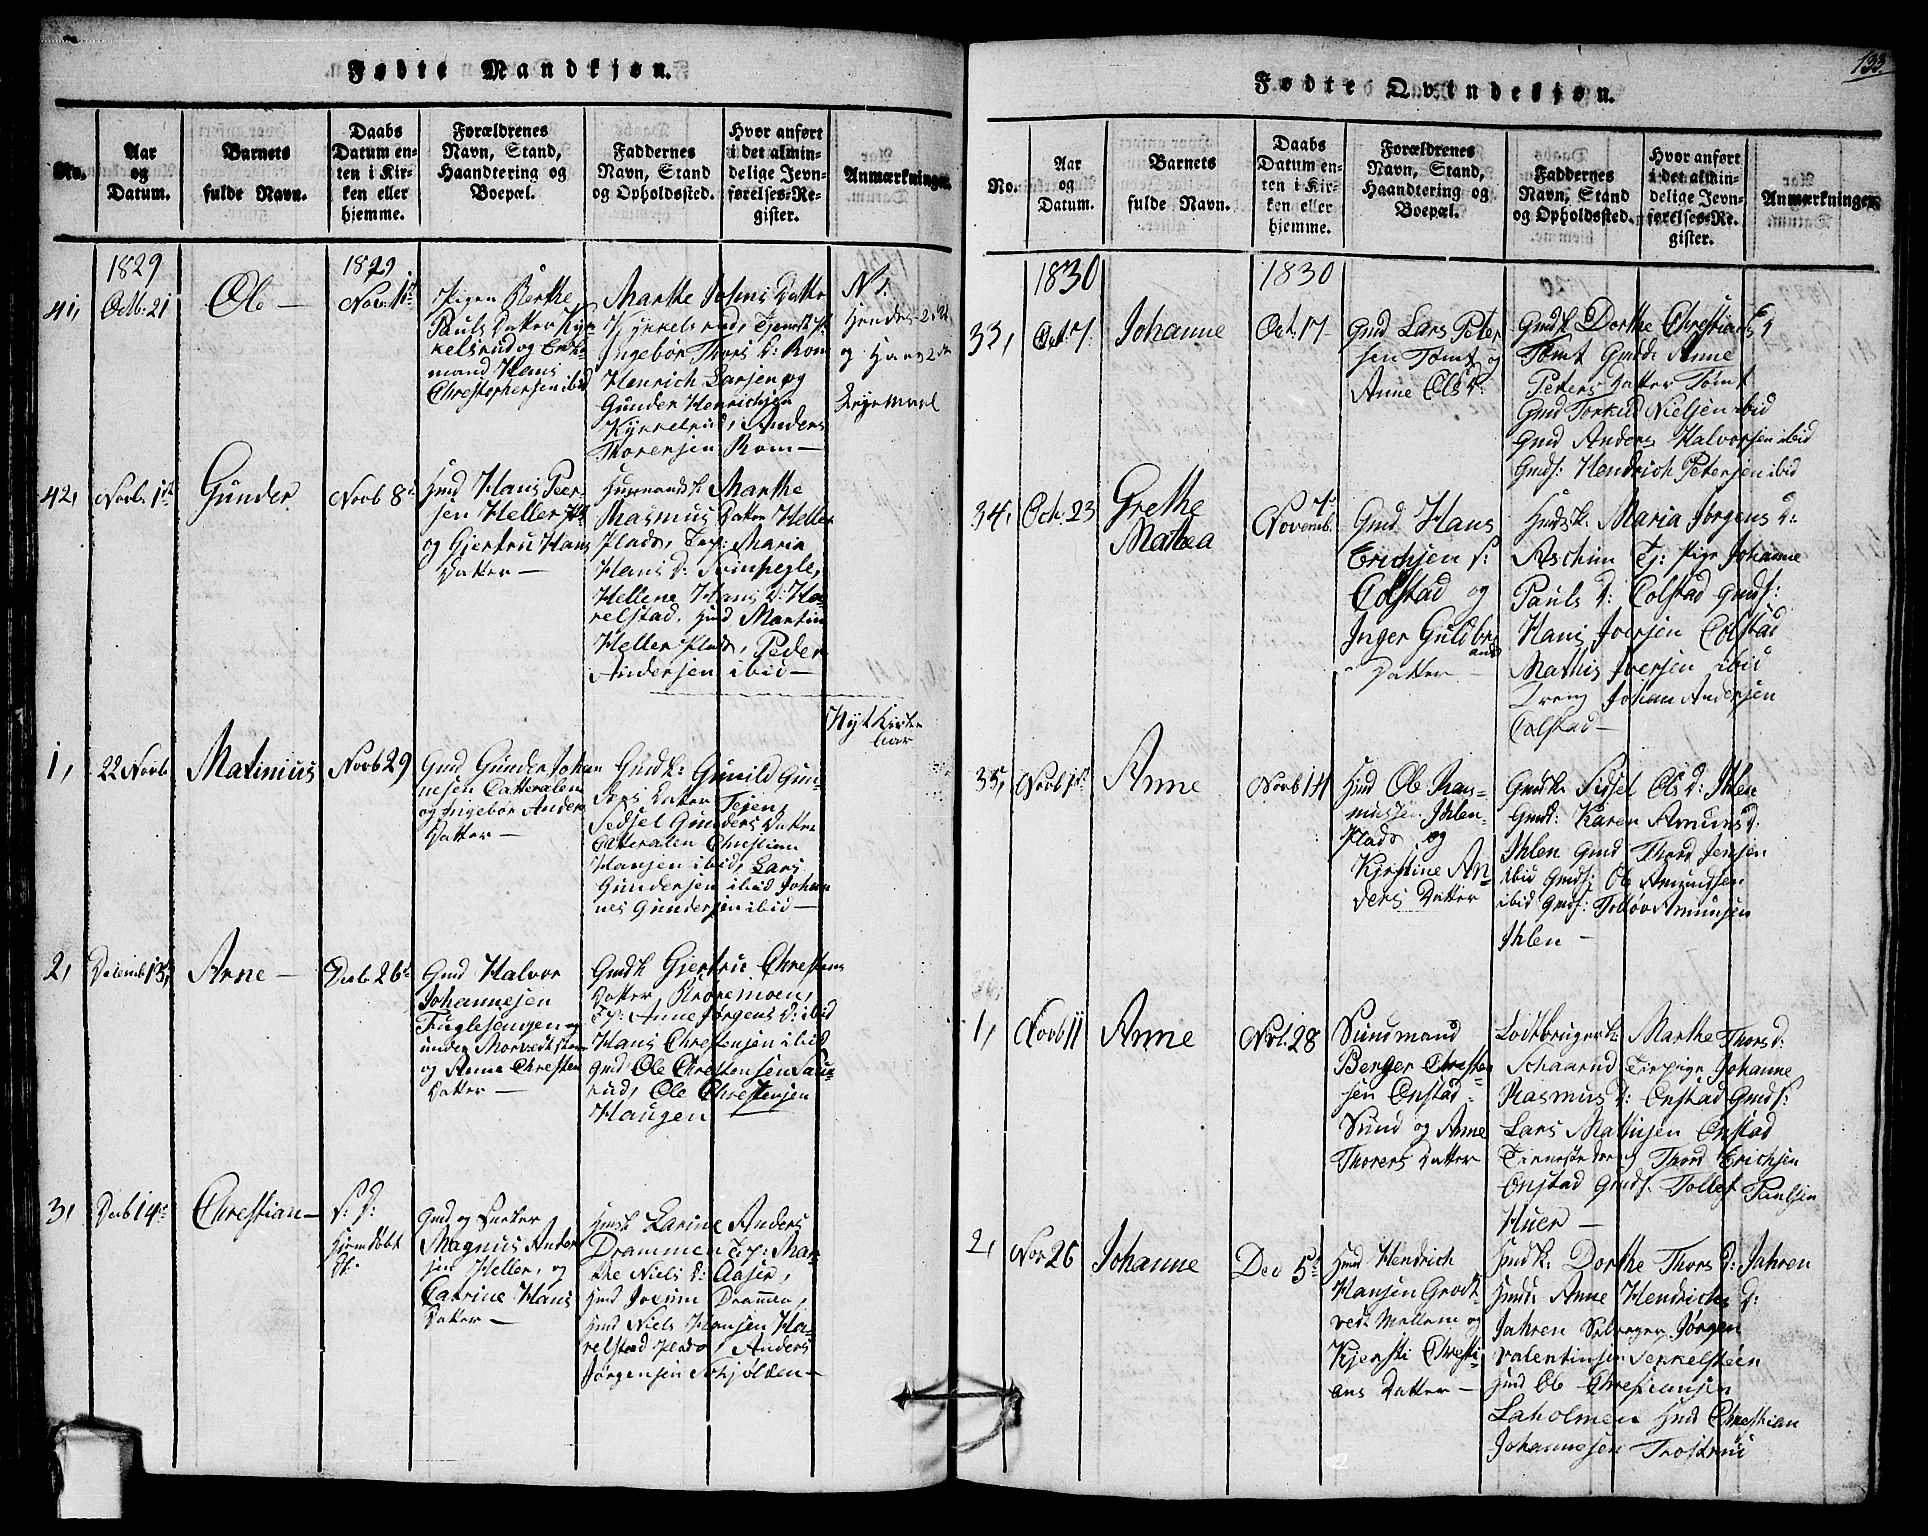 Fødte Mandkjøn.
No.
Aar
og
Datum.
Barnets
fulde Navn.
Daabs
Datum en-
ten i Kir-
ken eller
hjemme.
Forældrenes
Navn, Stand,
Haandtering og
Boepæl.
Faddernes
Navn, Stand
og Opholdssted.
Hvor anført
i det almin-
delige Jevn-
førelses-Re-
gister.
Anmærkninger.
1829
1829
41, Octb: 21
Ole —
Novb: 1st
Pigen Berthe
Pauls Datter
og
mand Hans
Christophersen ibid
Marthe Johns Datter
Ingebor Thors D: Rom
Henrich Larsen og
Gunder Henrichsen
Anders
Thorersen Rom —
N.
og Hans
42, Novb: 1st
Gunder.
Novb 8de
Hmd Hans Peer-
sen Heller Pl:
og Gjertru Hans
Datter —
Huusmandsk: Marthe
Rasmus Datter Heller
Plads, Maria
Hans D:
Hellene Hans D: Ha-
relstad. Hmd Martin
Heller Plads, Peder
Andersen ibid —
Nyt Kirke
aar
1, 22 Novb
Matinius
Novb 29
Gmd Gunder Johan
nesen Catteralen
og Ingebor Anders
Datter —
Gmdk: Gunild Gun-
ders Datter Tejen,
Sedsel Gunders Datter
Catteralen Christian
Hansen ibid, Lars
Gundersen ibid Johan
nes Gundersen ibid —
2, Decemb 13,
Arne —
Decb 26de
Gmd Halvor
Johannesen
Fuglesengen
under
og Anne Christens
Datter —
Gmdk Gjertru Christens
Datter, Kroremoen,
Tp: Anne Jørgens D: ibid
Hans Christensen ibid
Gmd Ole Christensen
rud, Ole Christensen
Haugen
3, Decb 14de
Christian —
S: D:
Hjemdøbt
Gmd og
Magnus Ander
sen Heller, og
Catrine Hans
Datter —
Hmdk Larine Anders
Drammen Tp: Mar-
the Niels D: Aaser,
Hmd Drammen,
Hmd Niels Hansen Ha-
relstad Plads, Anders
Jørgensen Schjølden —
133.
Fødte Qvindekjøn.
No.
Aar
og
Datum.
Barnets
fulde Navn.
Daabs
Datum en-
ten i Kir-
ken eller
hjemme.
Forældrenes
Navn, Stand,
Haandtering og
Boepæl.
Faddernes
Navn, Stand
og Opholdssted.
Hvor anført
i det almin-
delige Jevn-
førelses-Re-
gister.
Anmærkninger.
1830
1830
33, Oct. 7.
Johanne
Oct. 17
Gmd Lars Peter
sen Tømt og
Anne Ols D:
Gmdk Dorthe Christians D
Tømt Gmdd: Anne
Peters Datter Tømt
Gmd Torkild Nielsen ibid
Gmd Anders Halvorsen ibid
Gmds: Hendrich Petersen ibid
34, Oct. 23
Grethe
Mathea
Novemb. 7
Gmd Hans
Erichsen
Colstad og
Inger Guldbr
ands
Datter —
Hmdsk: Maria Jørgens D:
Aschim Tj: Pige Johanne
Pauls D: Colstad Gmds:
Hans Iversen Colstad
Mathis Iversen ibid
Dreng Johan Andersen
Colstad —
35, Novb 1st
Anne
Novb 14
Hmd Ole Ras-
mussen Ihlen-
Plads og
Kjerstine An-
ders Datter
Gmdk: Sidsel Ols D: Ihlen
Gmdd: Karen Amunds D:
Ihlen Gmd Thord Jensen
ibid Gmds: Ole Amundsen
ibid Gmds: Amunsen
Ihlen —
1, Novb 11
Anne
Nov. 28
Sundmand
Berger Christen
sen Onstad-
Sund og Anne
Thorers Datter
Lodtbrugerk: Marthe Thors D:
Schaarud Tjen: pige Johanne
Rasmus D: Onstad Gmds:
Lars Mathisen Onstad
Tjenestedreng Thord Erichsen
Onstad Gmds. Tollef Paulsen
Huer —
2, Nov 26
Johanne
Dec 5te
Hmd Hendrich
Hansen Grodt-
vedt Mellem og
Kjersti Christi-
ans Datter —
Hmdk: Dorthe Thors D: Jahren
Hmdd: Anne Hendrichs D:
Jahren Jørgen
Valentinsen
Hmd Ole Christiansen
Laholmen Hmd Christian
Johannesen Trostrud